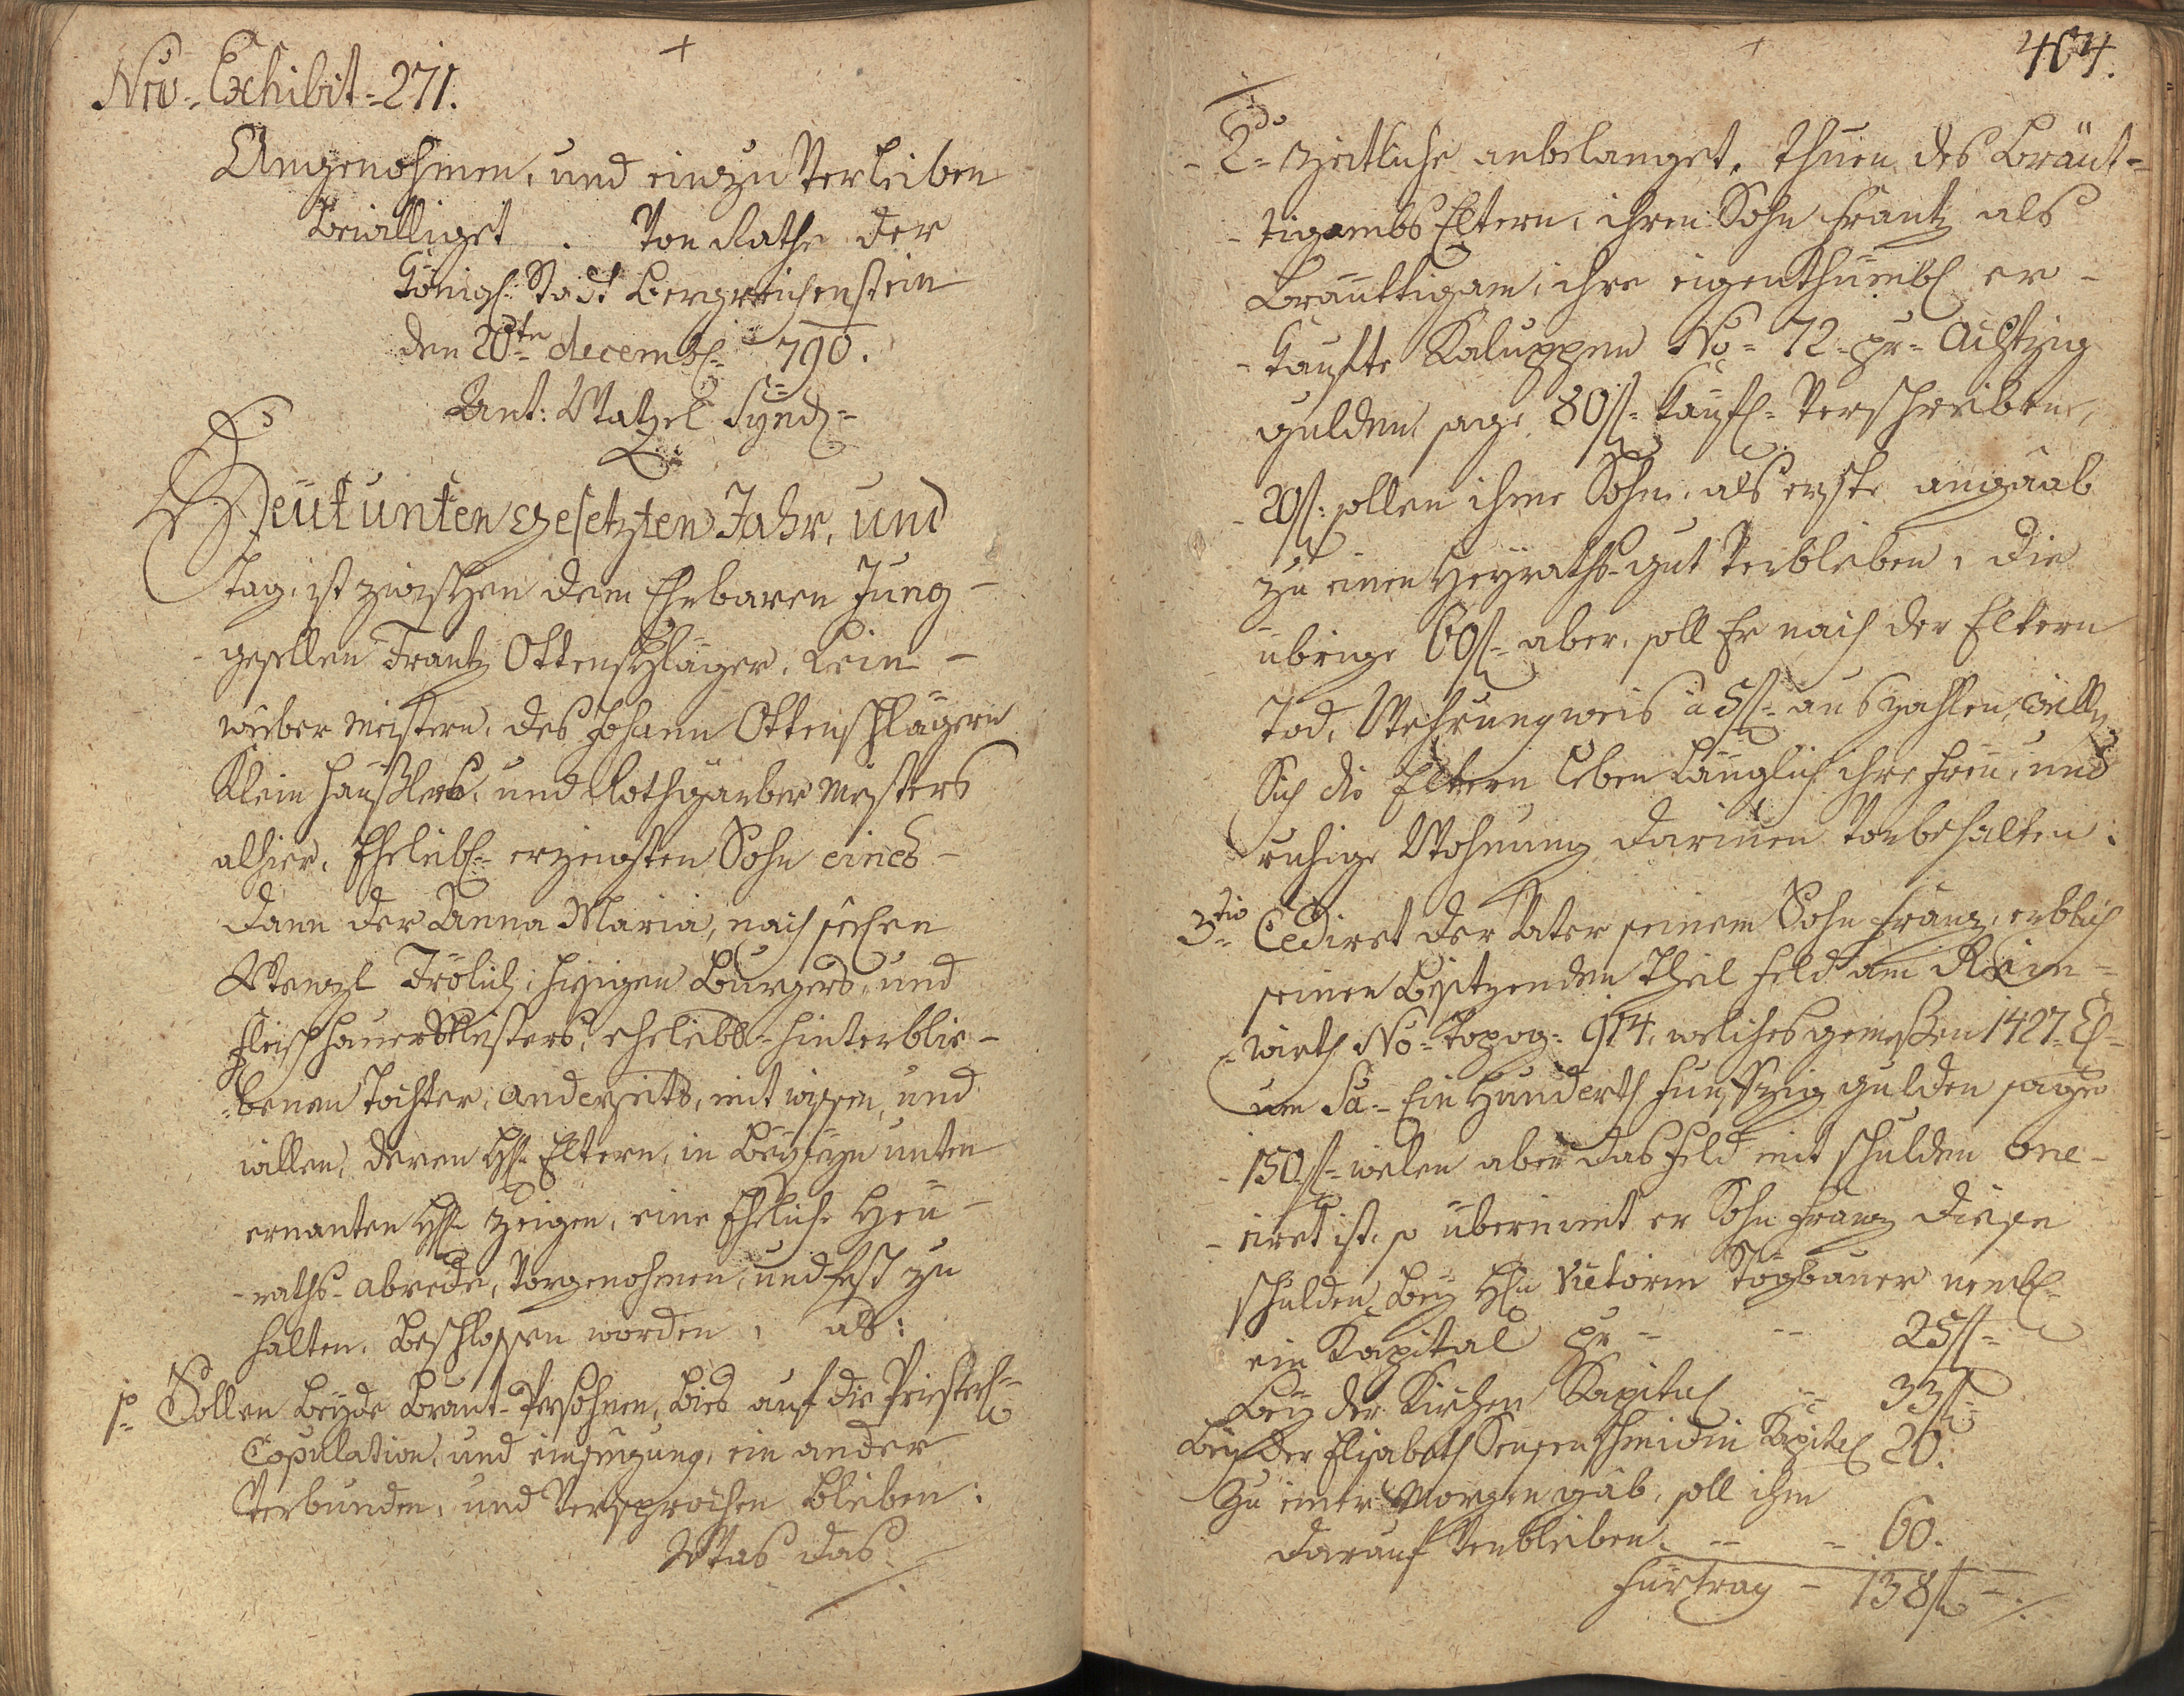 +
Nro. Exhibit = 271.
Angenohmen, und einzu Verleiben
bewilliget . Von Rathe der
Königl: Stadt Bergreichenstein
den 20te decembl: 790.
Ant: Watzel Synd:
Heut unten gesetzten Jahr, und
Tag, ist zwischen dem Ehrbaren Jung-
gesellen Frantz Ottenschläger, Lein-
weber Meistern, des Johann Ottenschlägern
Klein Häußlers, und Rothgärber Meisters
alhier, Ehelibl: erzeugten Sohn eines-
dann der Anna Maria, nach seelen
Wenzl Frölich, hisigen Burgers, und
Fleischhauer Meisters, ehelibl= hinterblie-
-benen Tochter, anderseits, mit wissen, und
willen, deren Hh: Eltern, in Beyseyn unten
ernanten Hh: Zeigen, eine Ehliche Heu-
-raths-abrede, Vorgenohmen, und fest zu
halten, Beschlossen worden, als:
1º Sollen beyde Braut-Persohnen, bies auf die Priesterl:
Copulation, und einsegnung, ein ander
Verbunden, und Versprochen bleiben:
Was das
404.
+
- 2do zeitliche anbelanget, thuen des Bräut-
-tigambs Eltern, ihren Sohn Frantz als
Bräuttigam, ihre eigenthumbl er-
-kaufte Kaluppen No= 72 pr= Achtzig
gulden sage 80 f= käufl= Verschreiben,
-20 f: sollen ihme Sohn, als erste angaab
zu einen Heyraths-gut Verbleiben, die
übrige 60 f= aber, soll Er nach der Eltern
Tod, Wehrungweis à 5 f= auszahlen,
Sich die Eltern leben länglich ihre freu, und
ruhige Wohnung darinnen Vorbehalten:
3tio Cediret der Vater seinem Sohn Franz, erblich
seinen Besitzenden Theil Feld am Rein-
=wirth No= Topog: 914, welches gemeßen 1427 =
um Sa= Ein Hunderth Funffzig gulden sage
-150 f= welen aber das Feld mit schulden one-
-riret ist, so übernimt er Sohn Franz diese
schulden, bey Hhn Victorin Stögbauer nembl=
ein Kapital pr = -- 25 f=
bey der Kirchen Kapital = 33 f=
bey der Elisabeth Sensenschmidin Kapital 20:
Zu einer Morgen gab, soll ihm
darauf Verbleiben. -- - 60.
Fürtrag - 138 f=